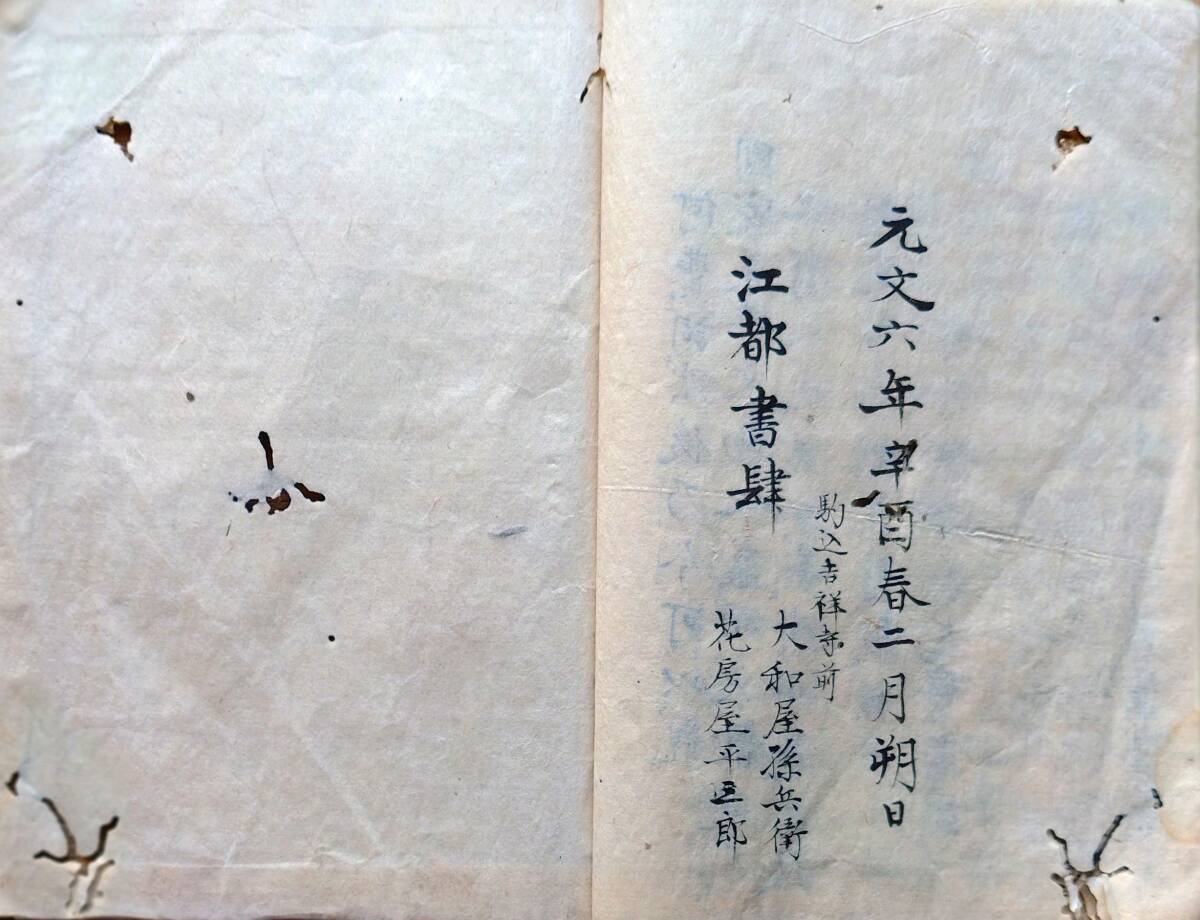 元文六年辛酉春二月朔日
駒込吉祥寺前
江都書肆
大和屋孫兵衛
花房屋平三郎